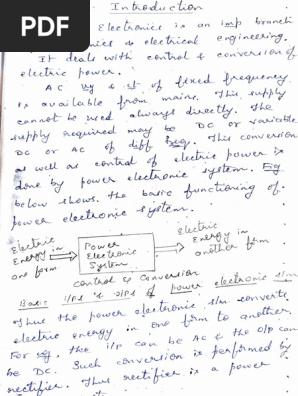 PDF
Introduction
Electronics is an imp branch
nics & electrical engineering.
It deals with control & conversion of
electric power.
AC vg & ct of fixed frequency
is available from mains. This supply
cannot be used always directly. The
supply required may be DC or variable
DC or AC of diff freq. This conversion
as well as control of electric power is
done by power electronic system. Fig
below shows the basic functioning of
power electronic system.
Electric
Energy in
one form
Power
Electronic
System
Electric
Energy in
another form
control & conversion
Basic i/ps & o/ps of power electronic s/m
Thus the power electronic s/m converts
electric energy in one form to another.
For eg, the i/p can be AC & the o/p can
be DC. Such conversion is performed by
rectifier. Thus rectifier is a power